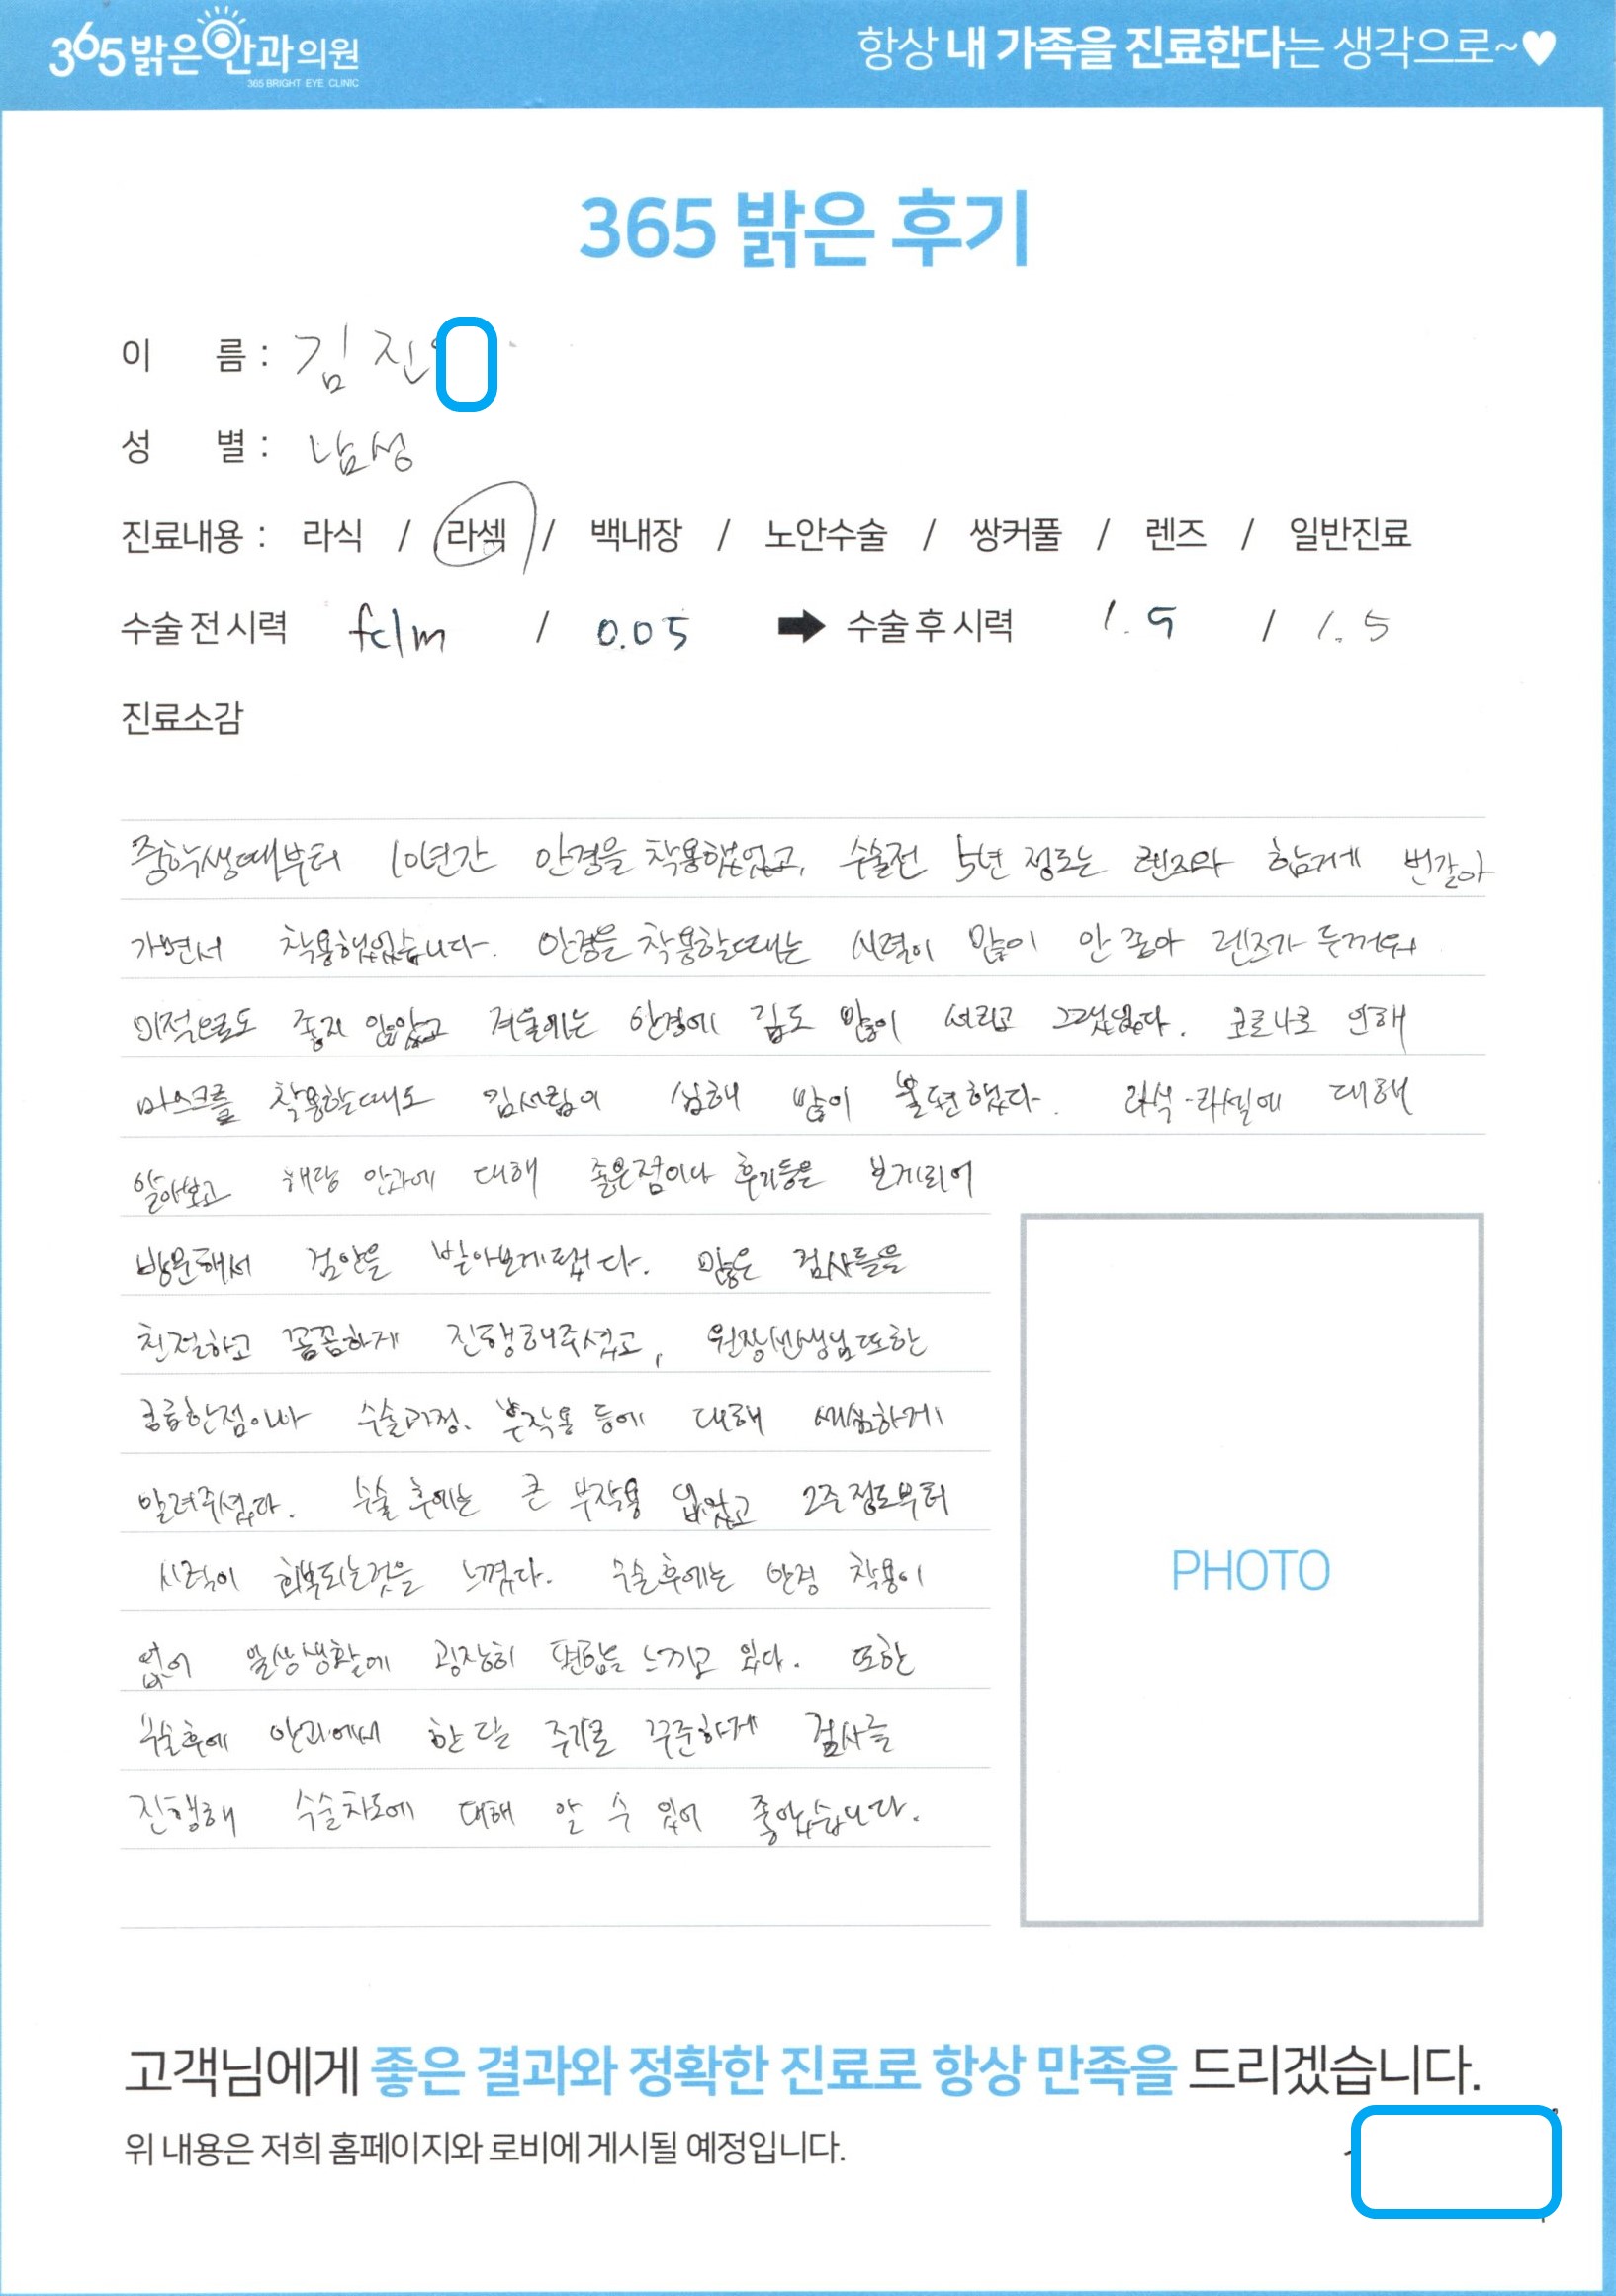 365 밝은안과의원
365 BRIGHT EYE CLINIC
항상 내 가족을 진료한다는 생각으로~♥
365 밝은 후기
이 름 : 김 진
성 별 : 남성
진료내용 : 라식 / 라섹 / 백내장 / 노안수술 / 쌍커풀 / 렌즈 / 일반진료
수술 전 시력 fc/m / 0.05 ➡ 수술 후 시력 1.5 / 1.5
진료소감
중학생때부터 10년간 안경을 착용했었고, 수술전 5년 정도는 렌즈와 함께 번갈아
가면서 착용했었습니다. 안경을 착용할때는 시력이 많이 안 좋아 렌즈가 두꺼워
미적으로도 좋지 않았고 겨울에는 안경에 김도 많이 서리고 그랬었다. 코로나로 인해
마스크를 착용할때도 김서림이 심해 많이 불편했다. 라식·라섹에 대해
알아보고 해당 안과에 대해 좋은점이나 후기등을 보게되어
방문해서 검안을 받아보게됐다. 많은 검사들을
친절하고 꼼꼼하게 진행해주셨고, 원장선생님또한
궁금한점이나 수술과정, 부작용 등에 대해 세심하게
알려주셨다. 수술 후에는 큰 부작용 없었고 2주정도부터
시력이 회복되는것을 느꼈다. 수술후에는 안경 착용이
없어 일상생활에 굉장히 편함을 느끼고 있다. 또한
수술후에 안과에서 한달 주기로 꾸준하게 검사를
진행해 수술차도에 대해 알 수 있어 좋았습니다.
PHOTO
고객님에게 좋은 결과와 정확한 진료로 항상 만족을 드리겠습니다.
위 내용은 저희 홈페이지와 로비에 게시될 예정입니다.